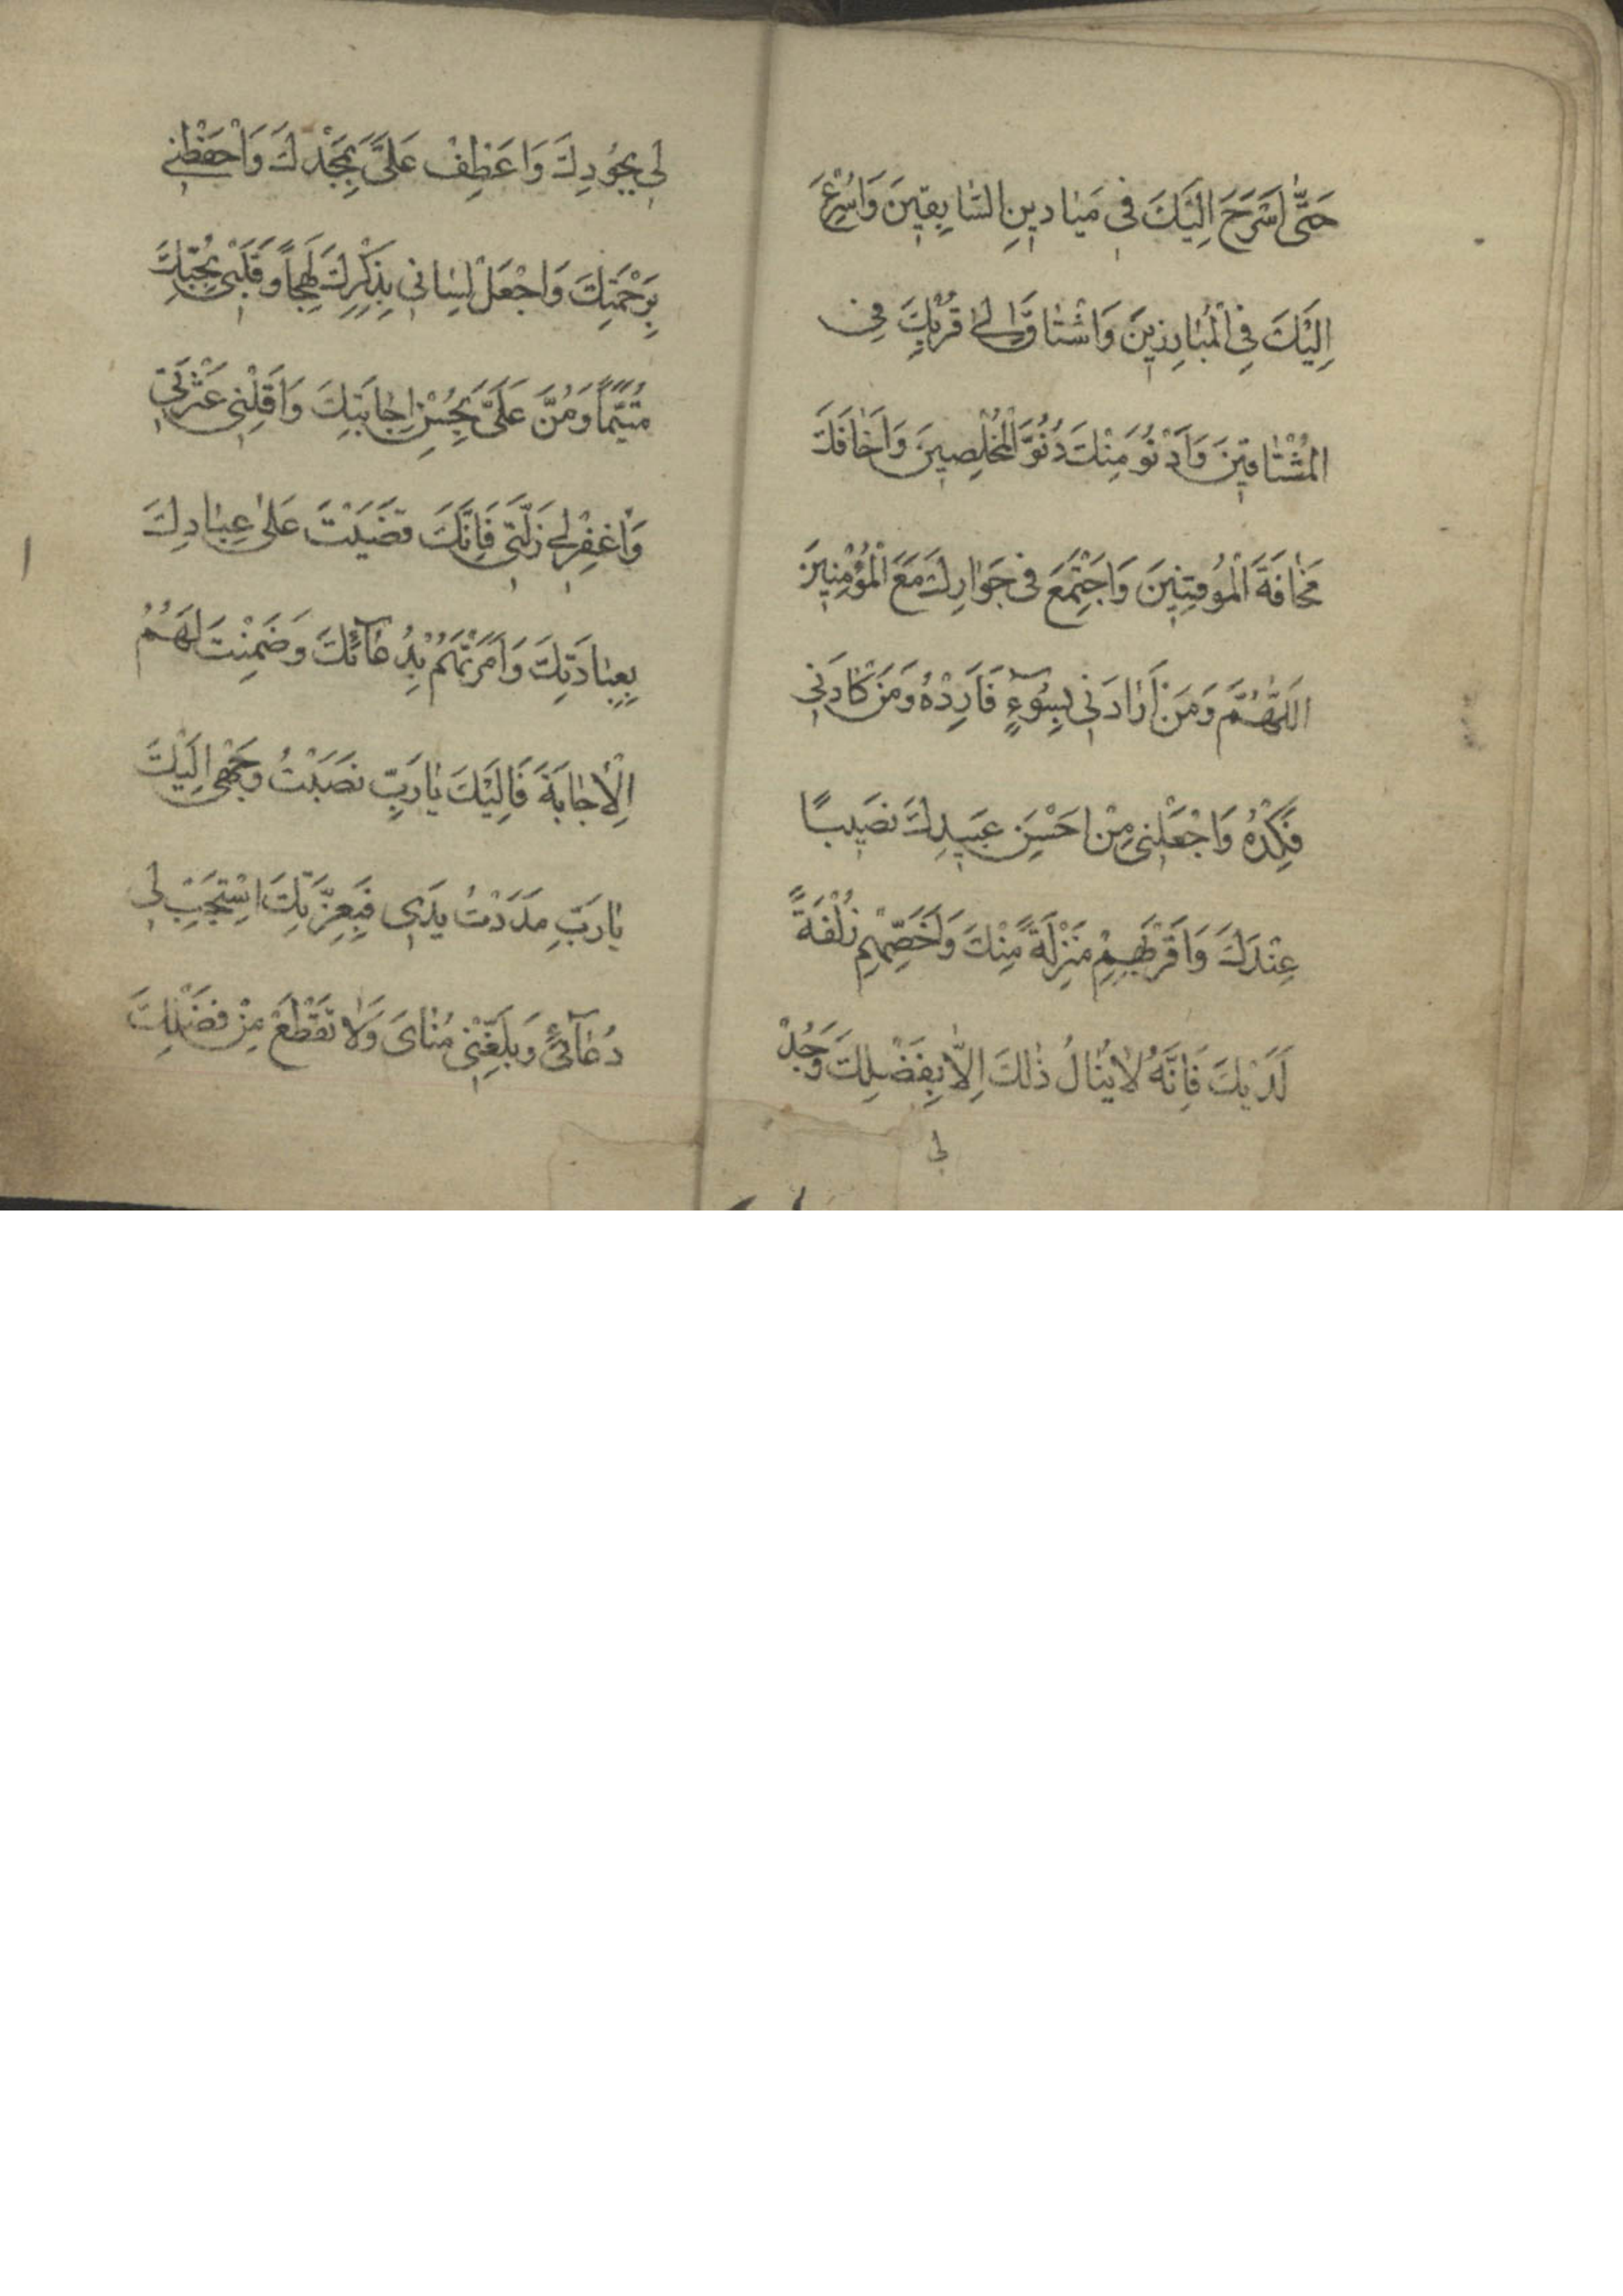 حَتّٰى اَسْرَحَ اِلَيْكَ فى مَيٰادينِ السّٰابِقينَ وَاُسْرِعَ
اِلَيْكَ فِى الْمُبٰارِزينَ وَاَشْتٰاقَ اِلىٰ قُرْبِكَ فِى
الْمُشْتٰاقينَ وَاَدْنُوَ مِنْكَ دُنُوَّ الْمُخْلِصينَ وَاَخٰافَكَ
مَخٰافَةَ الْمُوقِنينَ وَاَجْتَمِعَ فى جَوٰارِكَ مَعَ الْمُؤْمِنينَ
اَللّٰهُمَّ وَمَنْ اَرٰادَنى بِسُوۤءٍ فَاَرِدْهُ وَمَنْ كٰادَنى
فَكِدْهُ وَاجْعَلْنى مِنْ اَحْسَنِ عَبيدِكَ نَصيبًا
عِنْدَكَ وَاَقْرَبِهِمْ مَنْزِلَةً مِنْكَ وَاَخَصِّهِمْ زُلْفَةً
لَدَيْكَ فَاِنَّهُ لٰا يُنٰالُ ذٰلِكَ اِلّٰا بِفَضْلِكَ وَجُدْ
لى
لى بِجُودِكَ وَاعْطِفْ عَلَىَّ بِمَجْدِكَ وَاحْفَظْنى
بِرَحْمَتِكَ وَاجْعَلْ لِسٰانى بِذِكْرِكَ لَهِجاً وَقَلْبى بِحُبِّكَ
مُتَيَّماً وَمُنَّ عَلَىَّ بِحُسْنِ اِجٰابَتِكَ وَاَقِلْنى عَثْرَتى
وَاغْفِرْ لى زَلَّتى فَاِنَّكَ قَضَيْتَ عَلىٰ عِبٰادِكَ
بِعِبٰادَتِكَ وَاَمَرْتَهُمْ بِدُعٰاۤئِكَ وَضَمِنْتَ لَهُمُ
الْاِجٰابَةَ فَاِلَيْكَ يٰا رَبِّ نَصَبْتُ وَجْهى اِلَيْكَ
يٰا رَبِّ مَدَدْتُ يَدى فَبِعِزَّتِكَ اسْتَجِبْ لى
دُعٰاۤئى وَبَلِّغْنى مُنٰاىَ وَلٰا تَقْطَعْ مِنْ فَضْلِكَ